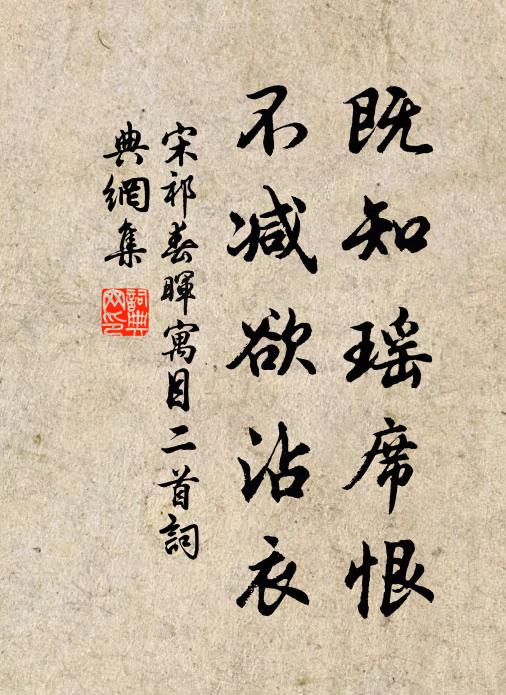 既知瑶席恨
不减欲沾衣
宋祁春暉寓目二首詞
典網集
詞典
网印